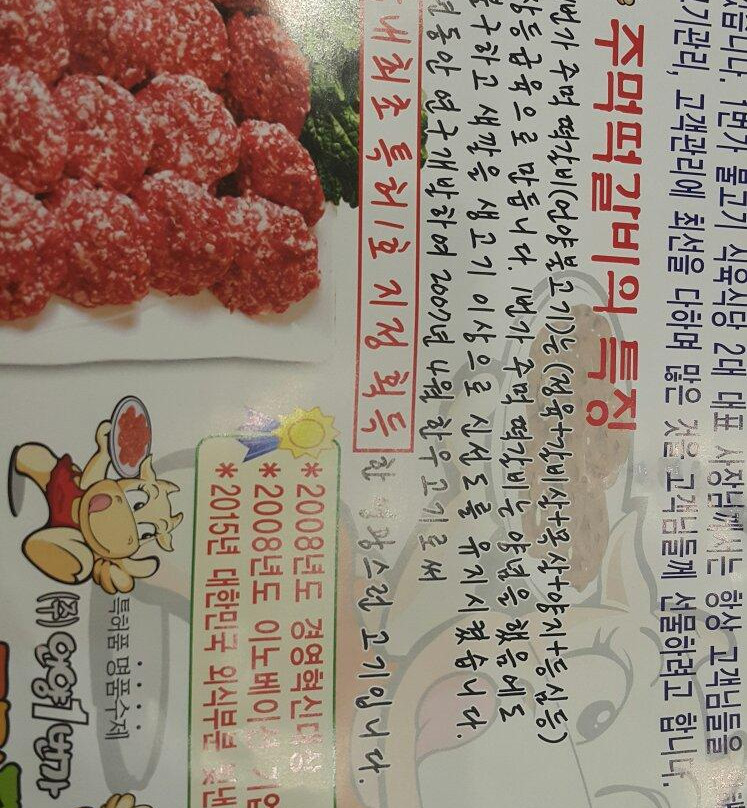 습니다. 1번가 불고기 식육식당 2대 대표 사장님께서는 항상 고객님들을
기관리, 고객관리에 최선을 다하며 많은 것을 고객님들께 선물하려고 합니다.
주먹떡갈비의 특징
번가 주먹 떡갈비(언양불고기)는 (정육+갈비살+목살+양지+등심등)
등급육으로 만듭니다. 1번가 주먹 떡갈비는 양념을 했음에도
구하고 색깔은 생고기 이상으로 신선도를 유지시켰습니다.
년동안 연구개발하여 2007년 4월 한우고기로써
내최초 특허1호 지정 획득 한 자랑스런 고기입니다.
*2008년도 경영혁신대상
*2008년도 이노베이션 기업
*2015년 대한민국 외식부문
특허품 명품수제
(주)언양1번가